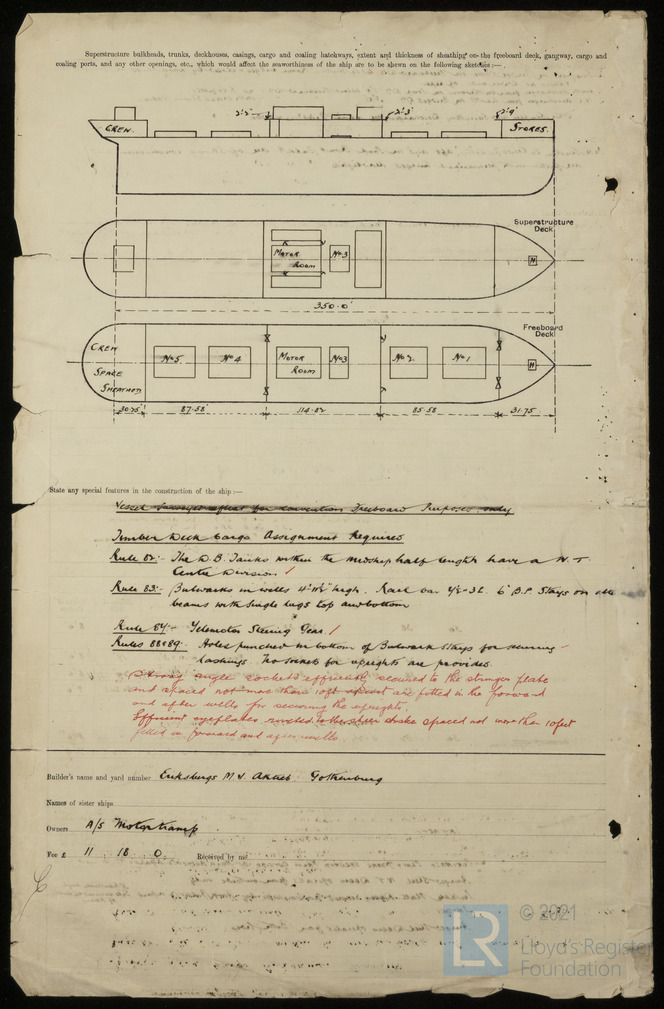 Superstructure bulkheads, trunks, deckhouses, casings, cargo and coaling hatchways, extent and thickness of sheathing on the freeboard deck, gangway, cargo and
coaling ports, and any other openings, etc., which would affect the seaworthiness of the ship are to be shewn on the following sketches:—
2'·2" 2'·3" 2'·9"
CREW. STORES.
Superstructure
Deck.
MOTOR
ROOM
No3
H
350·0'
Freeboard
Deck
CREW
SPACE
SHEATHED
No5 No4 MOTOR
ROOM
No3 No2 No1 H
30·25' 87·58' 114·82 85·58 31·75
State any special features in the construction of the ship:—
Freeboard Purposes only
Timber Deck Cargo Assignment Required
Rule 82:- The D.B. Tanks within the midship half length have a W.T.
Centre Division /
Rule 83:- Bulwarks in wells 4'·11½" high. 6" B.P. Stays on
beams with single lugs top and bottom
Rule 84:- Telemotor Steering Gear. /
Rules 88&89:- Holes punched in bottom of Bulwark Stays for securing
lashings. No sockets for uprights are provided.
Strong angle sockets efficiently secured to the stringer plate
and spaced not more than 10ft apart are fitted in the forward
and after wells for securing the uprights.
Efficient eyeplates riveted to the sheer strake spaced not more than 10 feet
fitted in forward and after wells.
Builder's name and yard number Eriksbergs M.V. Aktieb. Gothenburg
Names of sister ships
Owners A/S Mototramp
Fee £ 11 18 0 Received by me
© 2021
LR Lloyd's Register
Foundation